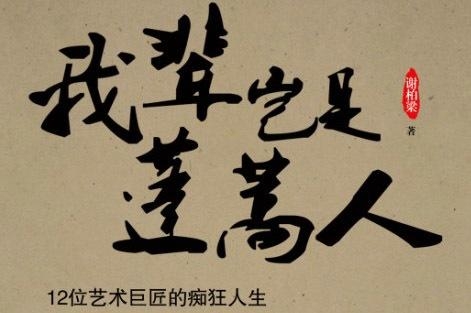 我辈岂是
蓬蒿人
谢柏梁
著
12位艺术巨匠的痴狂人生